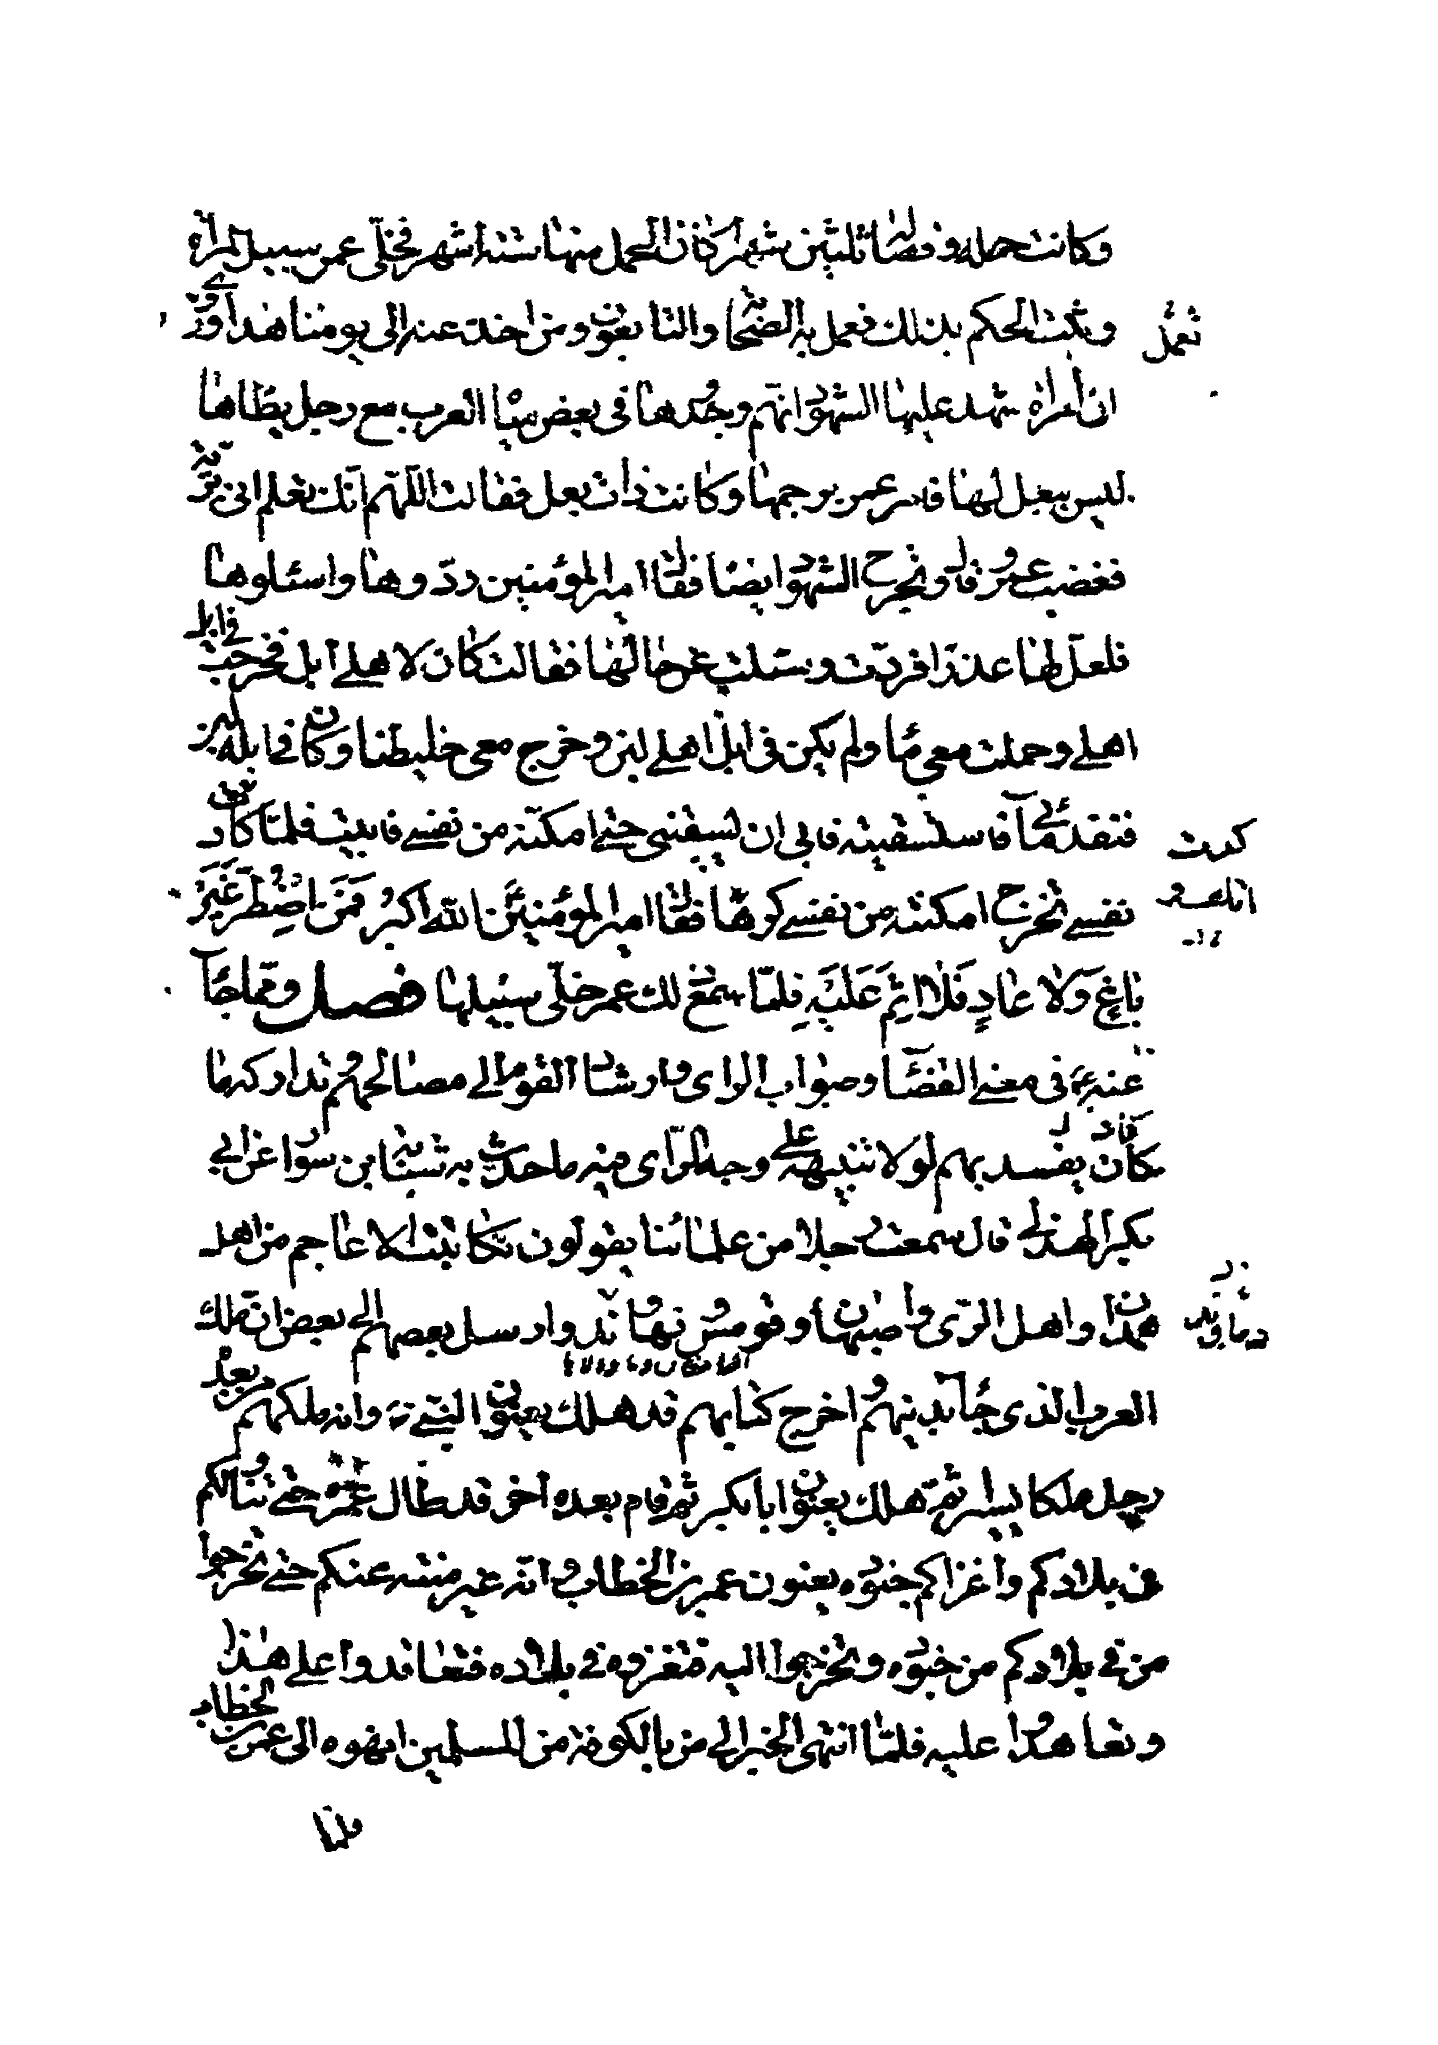 وكانت حمله وفصاله ثلثين شهرا كان الحمل منها ستة أشهر فخلى عمر سبيل المرأة
وثبت الحكم بذلك فعمل به الصحابة والتابعون ومن اخذ عنه الى يومنا هذا وروى
تعمل
ان امراة شهد عليها الشهود انهم وجدوها في بعض مياه العرب مع رجل يطأها
ليس ببعل لها فامر عمر برجمها وكانت ذات بعل فقالت اللهم انك تعلم انى بريئة
فغضب عمر وقال وتجرح الشهود ايضا فقال امير المؤمنين ردوها واسئلوها
فلعل لها عذرا فردت وسئلت عن حالها فقالت كان لاهلي ابل فخرجت في ابل
اهلي وحملت معي ماء ولم يكن في ابل اهلي لبن وخرج معي خليطنا وكان في ابله لبن
فنفد مائي فاستسقيته فابى ان يسقيني حتى امكنه من نفسي فابيت فلما كادت
كدت
نفسي تخرج امكنته من نفسي كرها فقال امير المؤمنين الله أكبر فَمَنِ اضْطُرَّ غَيْرَ
بَاغٍ وَلَا عَادٍ فَلَا إِثْمَ عَلَيْهِ فلما سمع ذلك عمر خلى سبيلها فصل ومما جاء
عنه ع في معنى القضاء وصواب الراى وارشاد القوم الى مصالحهم وتداركه ما
كان يفسد بهم لولا تنبيهه على وجه الراى فيه ما حدث به شبابة بن سوار عن ابي
كاد
بكر الهذلي قال سمعت رجلا من علمائنا يقولون تكاتبت الاعاجم من اهل
همذان واهل الرى واصبهان وقومس ونهاوند وارسل بعضهم الى بعض ان ملك
العرب الذى جاء بدينهم واخرج كتابهم قد هلك يعنون النبي وانه ملكهم من بعده
رجل ملكا يسيرا ثم هلك يعنون ابا بكر ثم قام بعده آخر قد طال عمره حتى تناولكم
في بلادكم واغزاكم جنوده يعنون عمر بن الخطاب وانه غير منته عنكم حتى تخرجوا
من في بلادكم من جنوده وتخرجوا اليه فتغزوه في بلاده فتعاقدوا على هذا
وتعاهدوا عليه فلما انتهى الخبر الى من بالكوفة من المسلمين انهوه الى عمر بن الخطاب
فلما